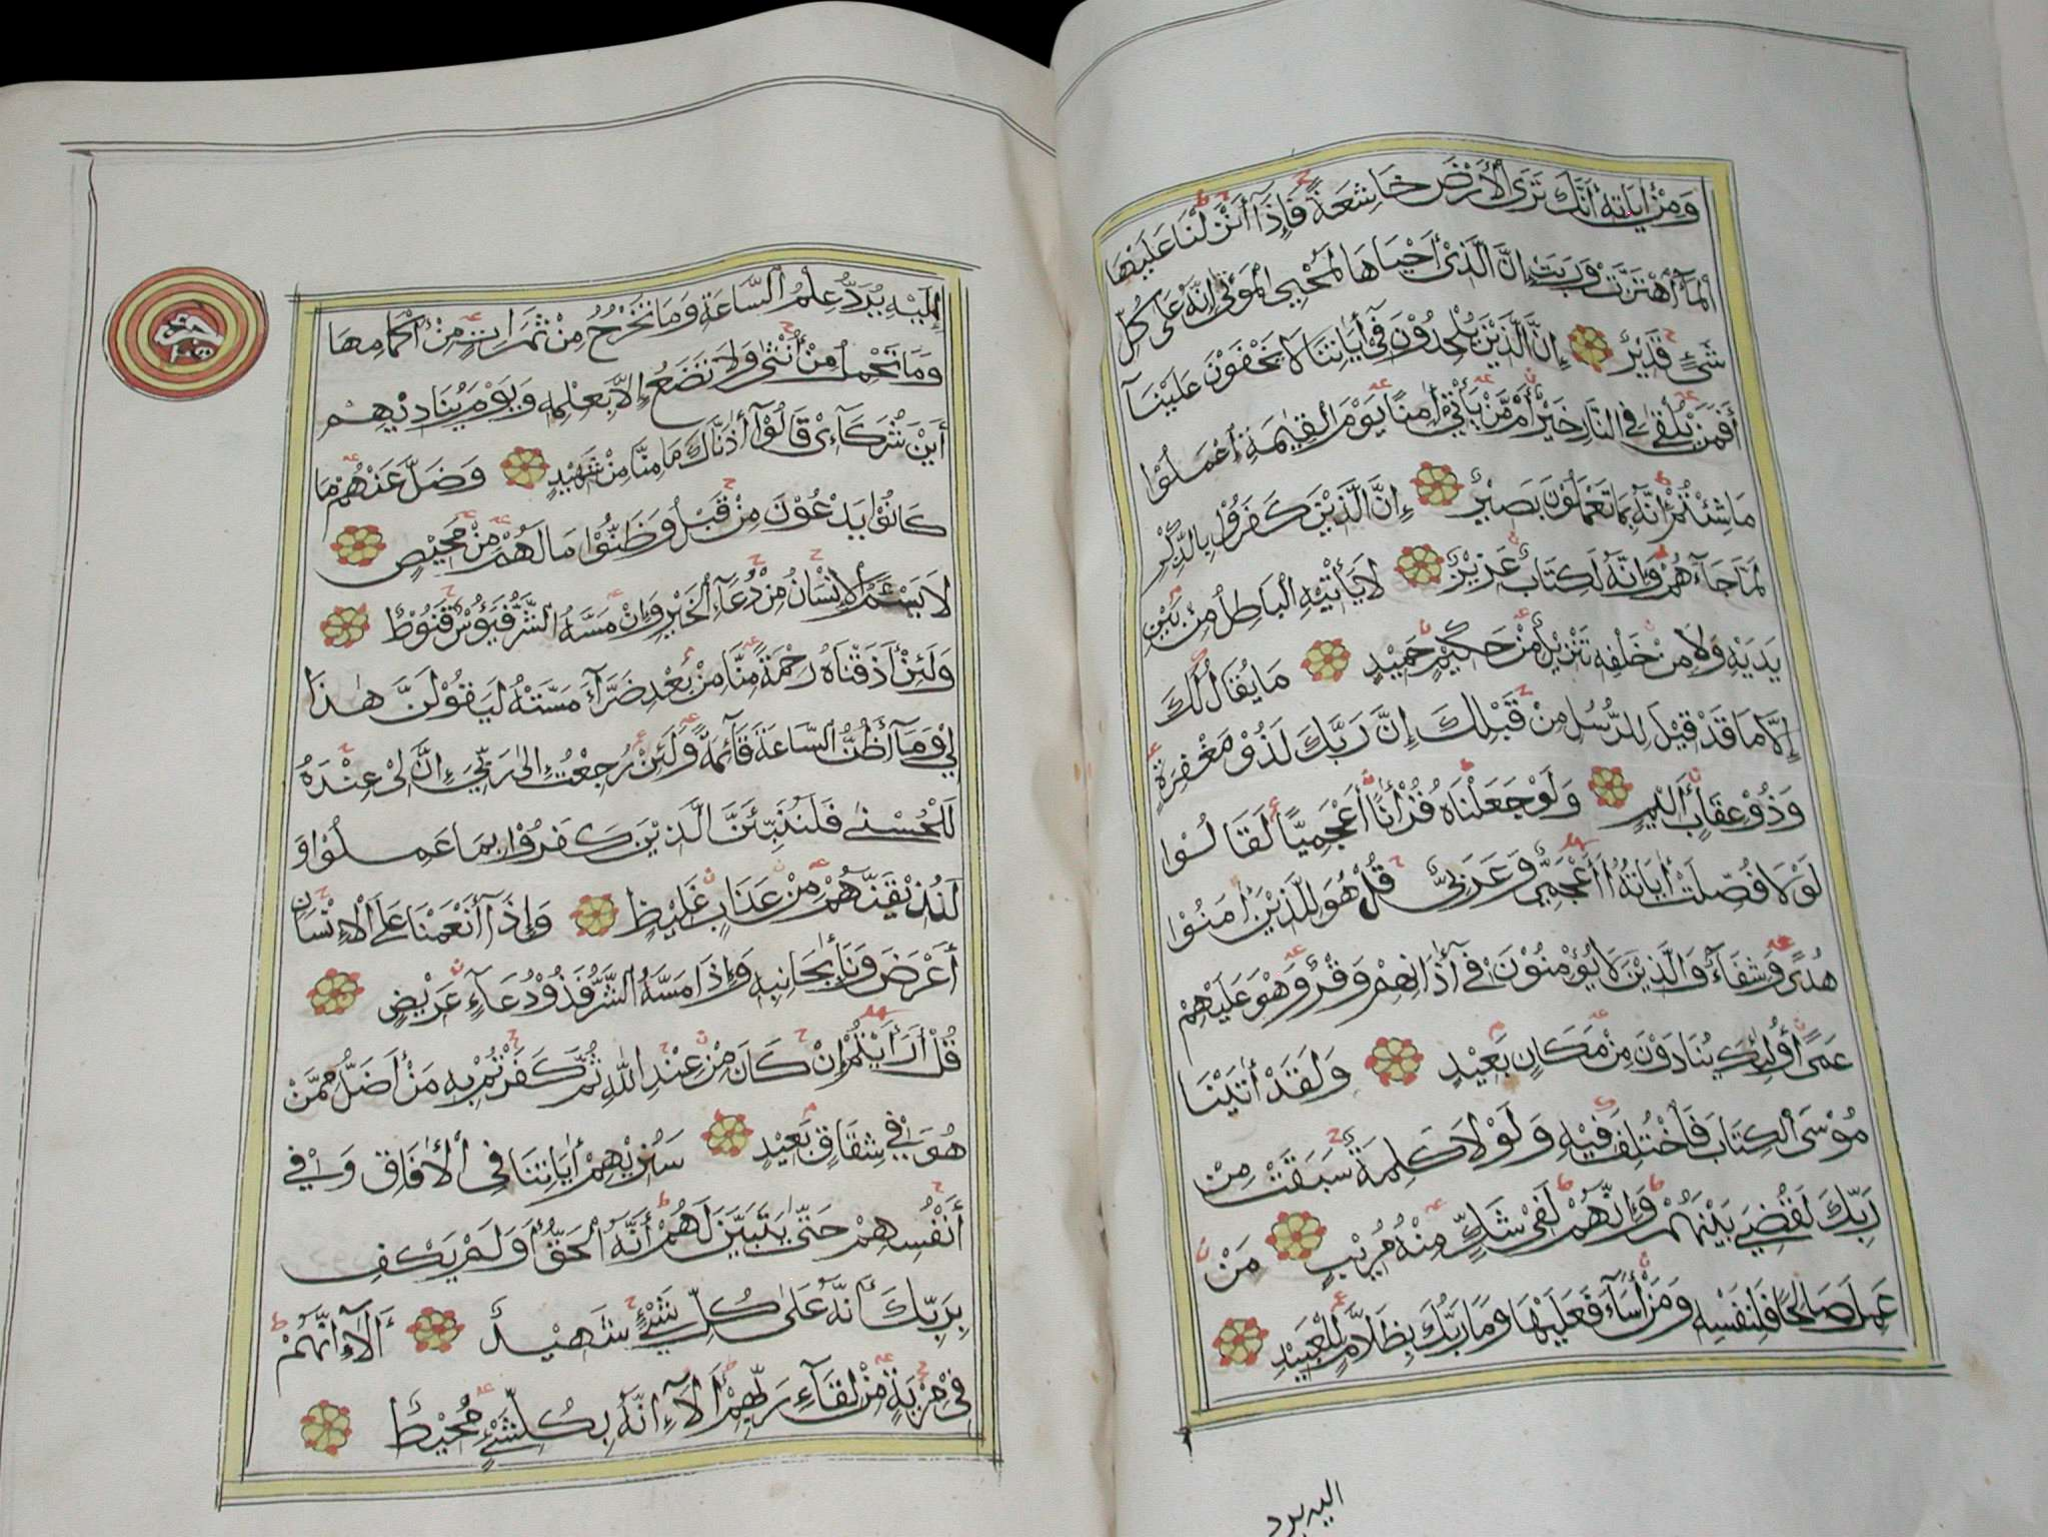 وَمِنْ أٰيَاتِهِ أَنَّكَ تَرَى الْأَرْضَ خَاشِعَةً فَإِذَآ أَنْزَلْنَا عَلَيْهَا
الْمَآءَ اهْتَزَّتْ وَرَبَتْ إِنَّ الَّذِيْ أَحْيَاهَا لَمُحْيِي الْمَوْتٰى إِنَّهُ عَلٰى كُلِّ
شَيْءٍ قَدِيْرٌ إِنَّ الَّذِيْنَ يُلْحِدُوْنَ فِيْ أٰيَاتِنَا لَا يَخْفَوْنَ عَلَيْنَآ
أَفَمَنْ يُلْقٰى فِي النَّارِ خَيْرٌ أَمْ مَّنْ يَأْتِيْ أٰمِنًا يَوْمَ الْقِيٰمَةِ اعْمَلُوْا
مَا شِئْتُمْ إِنَّهُ بِمَا تَعْمَلُوْنَ بَصِيْرٌ إِنَّ الَّذِيْنَ كَفَرُوْا بِالذِّكْرِ
لَمَّا جَآءَهُمْ وَإِنَّهُ لَكِتَابٌ عَزِيْزٌ لَا يَأْتِيْهِ الْبَاطِلُ مِنْ بَيْنِ
يَدَيْهِ وَلَا مِنْ خَلْفِهِ تَنْزِيْلٌ مِّنْ حَكِيْمٍ حَمِيْدٍ مَا يُقَالُ لَكَ
إِلَّا مَا قَدْ قِيْلَ لِلرُّسُلِ مِنْ قَبْلِكَ إِنَّ رَبَّكَ لَذُوْ مَغْفِرَةٍ
وَذُوْ عِقَابٍ أَلِيْمٍ وَلَوْ جَعَلْنَاهُ قُرْأٰنًا أَعْجَمِيًّا لَقَالُوْا
لَوْلَا فُصِّلَتْ أٰيَاتُهُ أَأَعْجَمِيٌّ وَعَرَبِيٌّ قُلْ هُوَ لِلَّذِيْنَ أٰمَنُوْا
هُدًى وَشِفَآءٌ وَالَّذِيْنَ لَا يُؤْمِنُوْنَ فِيْ أٰذَانِهِمْ وَقْرٌ وَهُوَ عَلَيْهِمْ
عَمًى أُولٰئِكَ يُنَادَوْنَ مِنْ مَكَانٍ بَعِيْدٍ وَلَقَدْ أٰتَيْنَا
مُوْسَى الْكِتَابَ فَاخْتُلِفَ فِيْهِ وَلَوْلَا كَلِمَةٌ سَبَقَتْ مِنْ
رَبِّكَ لَقُضِيَ بَيْنَهُمْ وَإِنَّهُمْ لَفِيْ شَكٍّ مِنْهُ مُرِيْبٍ مَنْ
عَمِلَ صَالِحًا فَلِنَفْسِهِ وَمَنْ أَسَآءَ فَعَلَيْهَا وَمَا رَبُّكَ بِظَلَّامٍ لِلْعَبِيْدِ
اليه يرد
إِلَيْهِ يُرَدُّ عِلْمُ السَّاعَةِ وَمَا تَخْرُجُ مِنْ ثَمَرَاتٍ مِنْ أَكْمَامِهَا
وَمَا تَحْمِلُ مِنْ أُنْثٰى وَلَا تَضَعُ إِلَّا بِعِلْمِهِ وَيَوْمَ يُنَادِيْهِمْ
أَيْنَ شُرَكَآءِيْ قَالُوْآ أٰذَنَّاكَ مَا مِنَّا مِنْ شَهِيْدٍ وَضَلَّ عَنْهُمْ مَا
كَانُوْا يَدْعُوْنَ مِنْ قَبْلُ وَظَنُّوْا مَا لَهُمْ مِنْ مَحِيْصٍ
لَا يَسْئَمُ الْإِنْسَانُ مِنْ دُعَآءِ الْخَيْرِ وَإِنْ مَسَّهُ الشَّرُّ فَيَؤُسٌ قَنُوْطٌ
وَلَئِنْ أَذَقْنَاهُ رَحْمَةً مِّنَّا مِنْ بَعْدِ ضَرَّآءَ مَسَّتْهُ لَيَقُوْلَنَّ هٰذَا
لِيْ وَمَآ أَظُنُّ السَّاعَةَ قَآئِمَةً وَلَئِنْ رُجِعْتُ إِلٰى رَبِّيْ إِنَّ لِيْ عِنْدَهُ
لَلْحُسْنٰى فَلَنُنَبِّئَنَّ الَّذِيْنَ كَفَرُوْا بِمَا عَمِلُوْا وَ
لَنُذِيْقَنَّهُمْ مِنْ عَذَابٍ غَلِيْظٍ وَإِذَآ أَنْعَمْنَا عَلَى الْإِنْسَانِ
أَعْرَضَ وَنَأٰ بِجَانِبِهِ وَإِذَا مَسَّهُ الشَّرُّ فَذُوْ دُعَآءٍ عَرِيْضٍ
قُلْ أَرَأَيْتُمْ إِنْ كَانَ مِنْ عِنْدِ اللهِ ثُمَّ كَفَرْتُمْ بِهِ مَنْ أَضَلُّ مِمَّنْ
هُوَ فِيْ شِقَاقٍ بَعِيْدٍ سَنُرِيْهِمْ أٰيَاتِنَا فِي الْأٰفَاقِ وَفِيْ
أَنْفُسِهِمْ حَتّٰى يَتَبَيَّنَ لَهُمْ أَنَّهُ الْحَقُّ أَوَلَمْ يَكْفِ
بِرَبِّكَ أَنَّهُ عَلٰى كُلِّ شَيْءٍ شَهِيْدٌ أَلَآ إِنَّهُمْ
فِيْ مِرْيَةٍ مِنْ لِقَآءِ رَبِّهِمْ أَلَآ إِنَّهُ بِكُلِّ شَيْءٍ مُحِيْطٌ